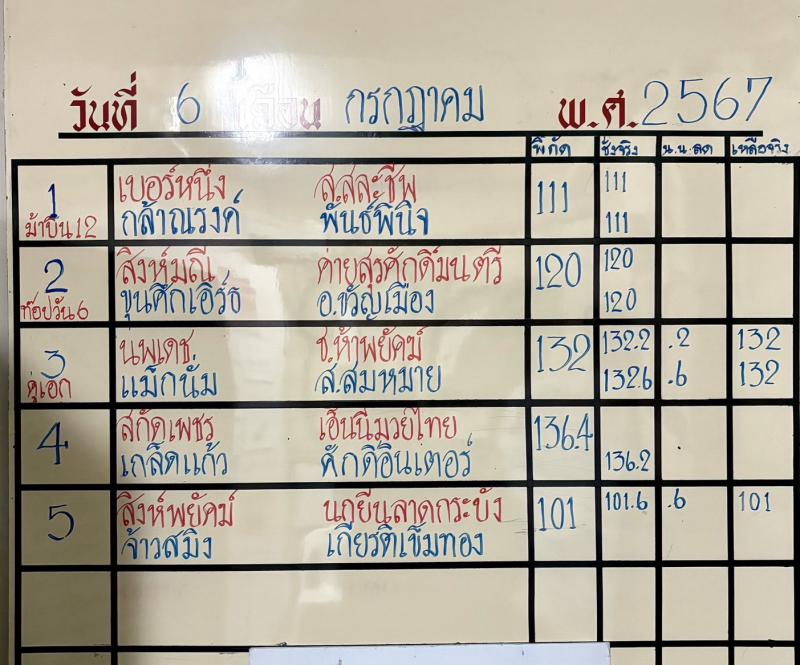 วันที่ 6 เดือน กรกฎาคม พ.ศ. 2567
พิกัด ชั่งจริง น.น.ลด เหลือจริง
1 เบอร์หนึ่ง ส.สละชีพ 111 111
ม้าบิน12 กล้าณรงค์ พันธ์พินิจ 111
2 สิงห์มณี ค่ายสุรศักดิ์มนตรี 120 120
ท๊อปวัน6 ขุนศึกเอิร์ธ อ.ขวัญเมือง 120
3 นพเดช ช.ห้าพยัคฆ์ 132 132.2 .2 132
คู่เอก แม็กนั่ม ส.สมหมาย 132.6 .6 132
4 สกัดเพชร เฮ็นนี่มวยไทย 136.4
เกล็ดแก้ว ศักดิ์อินเตอร์ 136.2
5 สิงห์พยัคฆ์ นกยีนลาดกระบัง 101 101.6 .6 101
จ้าวสมิง เกียรติเข็มทอง